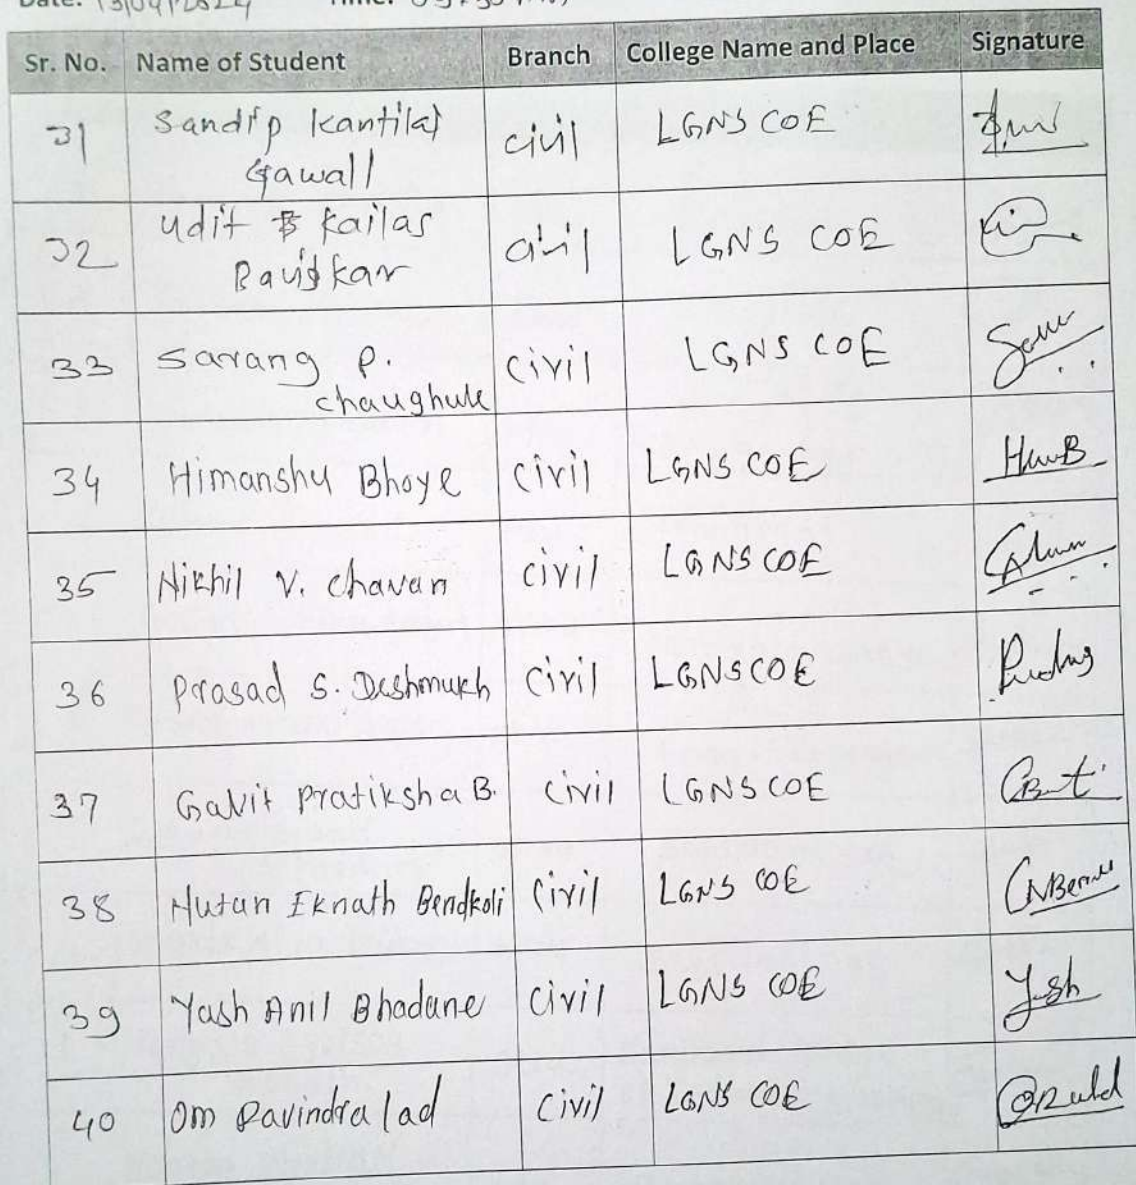 Date: 13/04/2024 Time:
Sr. No. Name of Student Branch College Name and Place Signature
31 Sandip Kantilal Gawali civil LGNS COE
32 Udit Kailas Baviskar civil LGNS COE
33 Sarang P. chaughule civil LGNS COE
34 Himanshu Bhoye civil LGNS COE
35 Nikhil V. Chavan civil LGNS COE
36 Prasad S. Deshmukh civil LGNS COE
37 Gavit Pratiksha B. civil LGNS COE
38 Nutan Eknath Bendkoli civil LGNS COE
39 Yash Anil Bhadane civil LGNS COE Yash
40 Om Ravindra lad civil LGNS COE